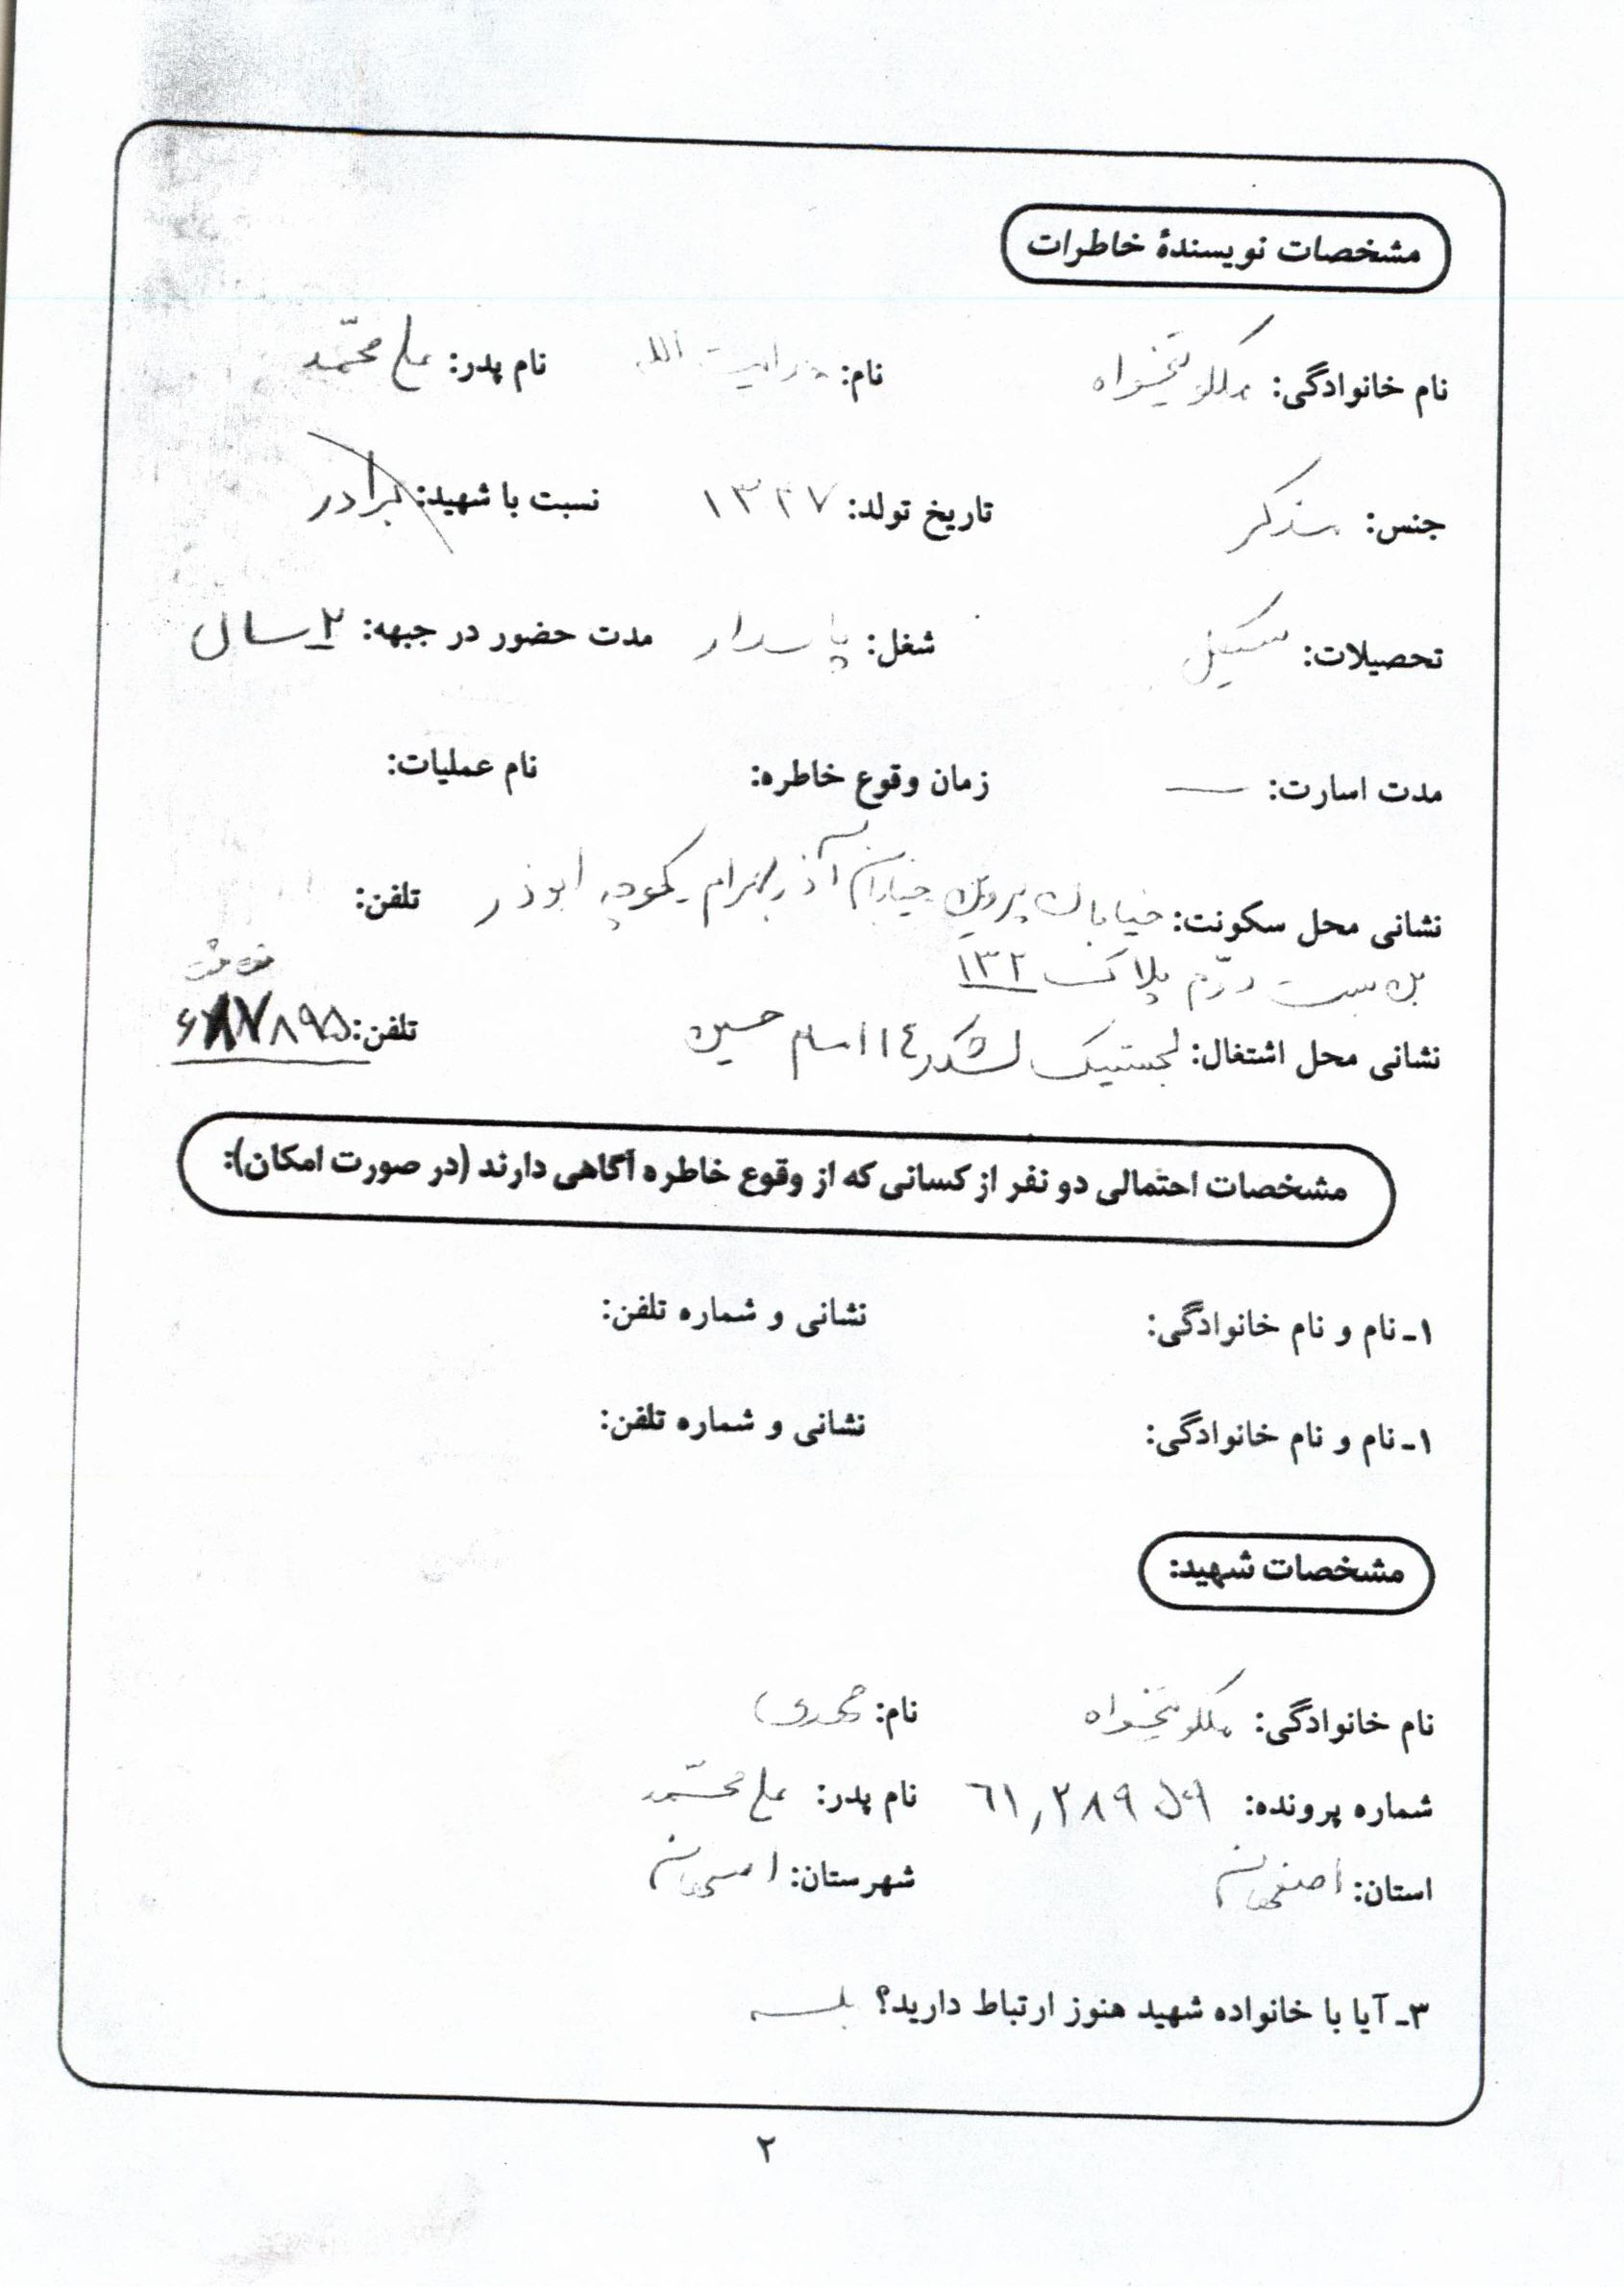 مشخصات نویسندهٔ خاطرات
نام خانوادگی: ملکوتیخواه نام: هدایت الله نام پدر: علی محمّد
جنس: مذکر تاریخ تولد: ۱۳۳۷ نسبت با شهید: برادر
تحصیلات: سیکل شغل: پاسدار مدت حضور در جبهه: ۲ سال
مدت اسارت: — زمان وقوع خاطره: نام عملیات:
نشانی محل سکونت: خیابان پروین خیابان آذر بهرام کوچه ابوذر تلفن:
بن بست دوّم پلاک ۱۳۲
نشانی محل اشتغال: لجستیک لشکر ۱۴ امام حسین تلفن:
مشخصات احتمالی دو نفر از کسانی که از وقوع خاطره آگاهی دارند (در صورت امکان):
۱ـ نام و نام خانوادگی: نشانی و شماره تلفن:
۱ـ نام و نام خانوادگی: نشانی و شماره تلفن:
مشخصات شهید:
نام خانوادگی: ملکوتیخواه نام: مهدی
شماره پرونده: ۶۱,۲۸۹ نام پدر: علی محمّد
استان: اصفهان شهرستان: اصفهان
۳ـ آیا با خانواده شهید هنوز ارتباط دارید؟ بله
۲